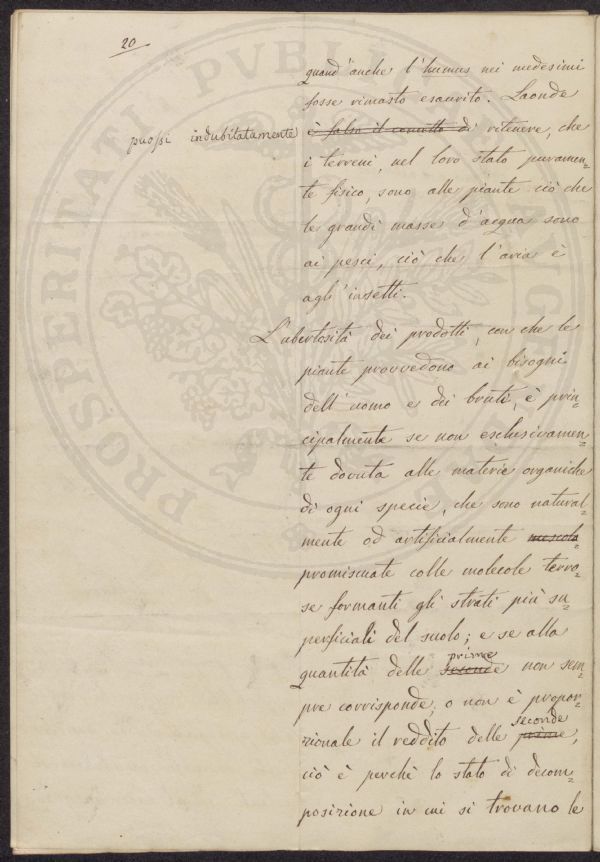 20
quand'anche l'humus nei medesimi
fosse rimasto esaurito. Laonde
puossi indubitatamente è falso il concetto di ritenere, che
i terreni, nel loro stato puramen=
te fisico, sono alle piante ciò che
le grandi masse d'acqua sono
ai pesci, ciò che l'aria è
agl'insetti.
L'ubertosità dei prodotti, con che le
piante provvedono ai bisogni
dell'uomo e dei bruti, è prin=
cipalmente se non esclusivamen=
te dovuta alle materie organiche
di ogni specie, che sono natural=
mente od artificialmente mescola
promiscuate colle molecole terro=
se formanti gli strati più su=
perficiali del suolo; e se alla
prime
quantità delle seconde non sem=
pre corrisponde, o non è propor=
seconde
zionale il reddito delle prime,
ciò è perchè lo stato di decom=
posizione in cui si trovano le
PROSPERITATI PUBLICAE